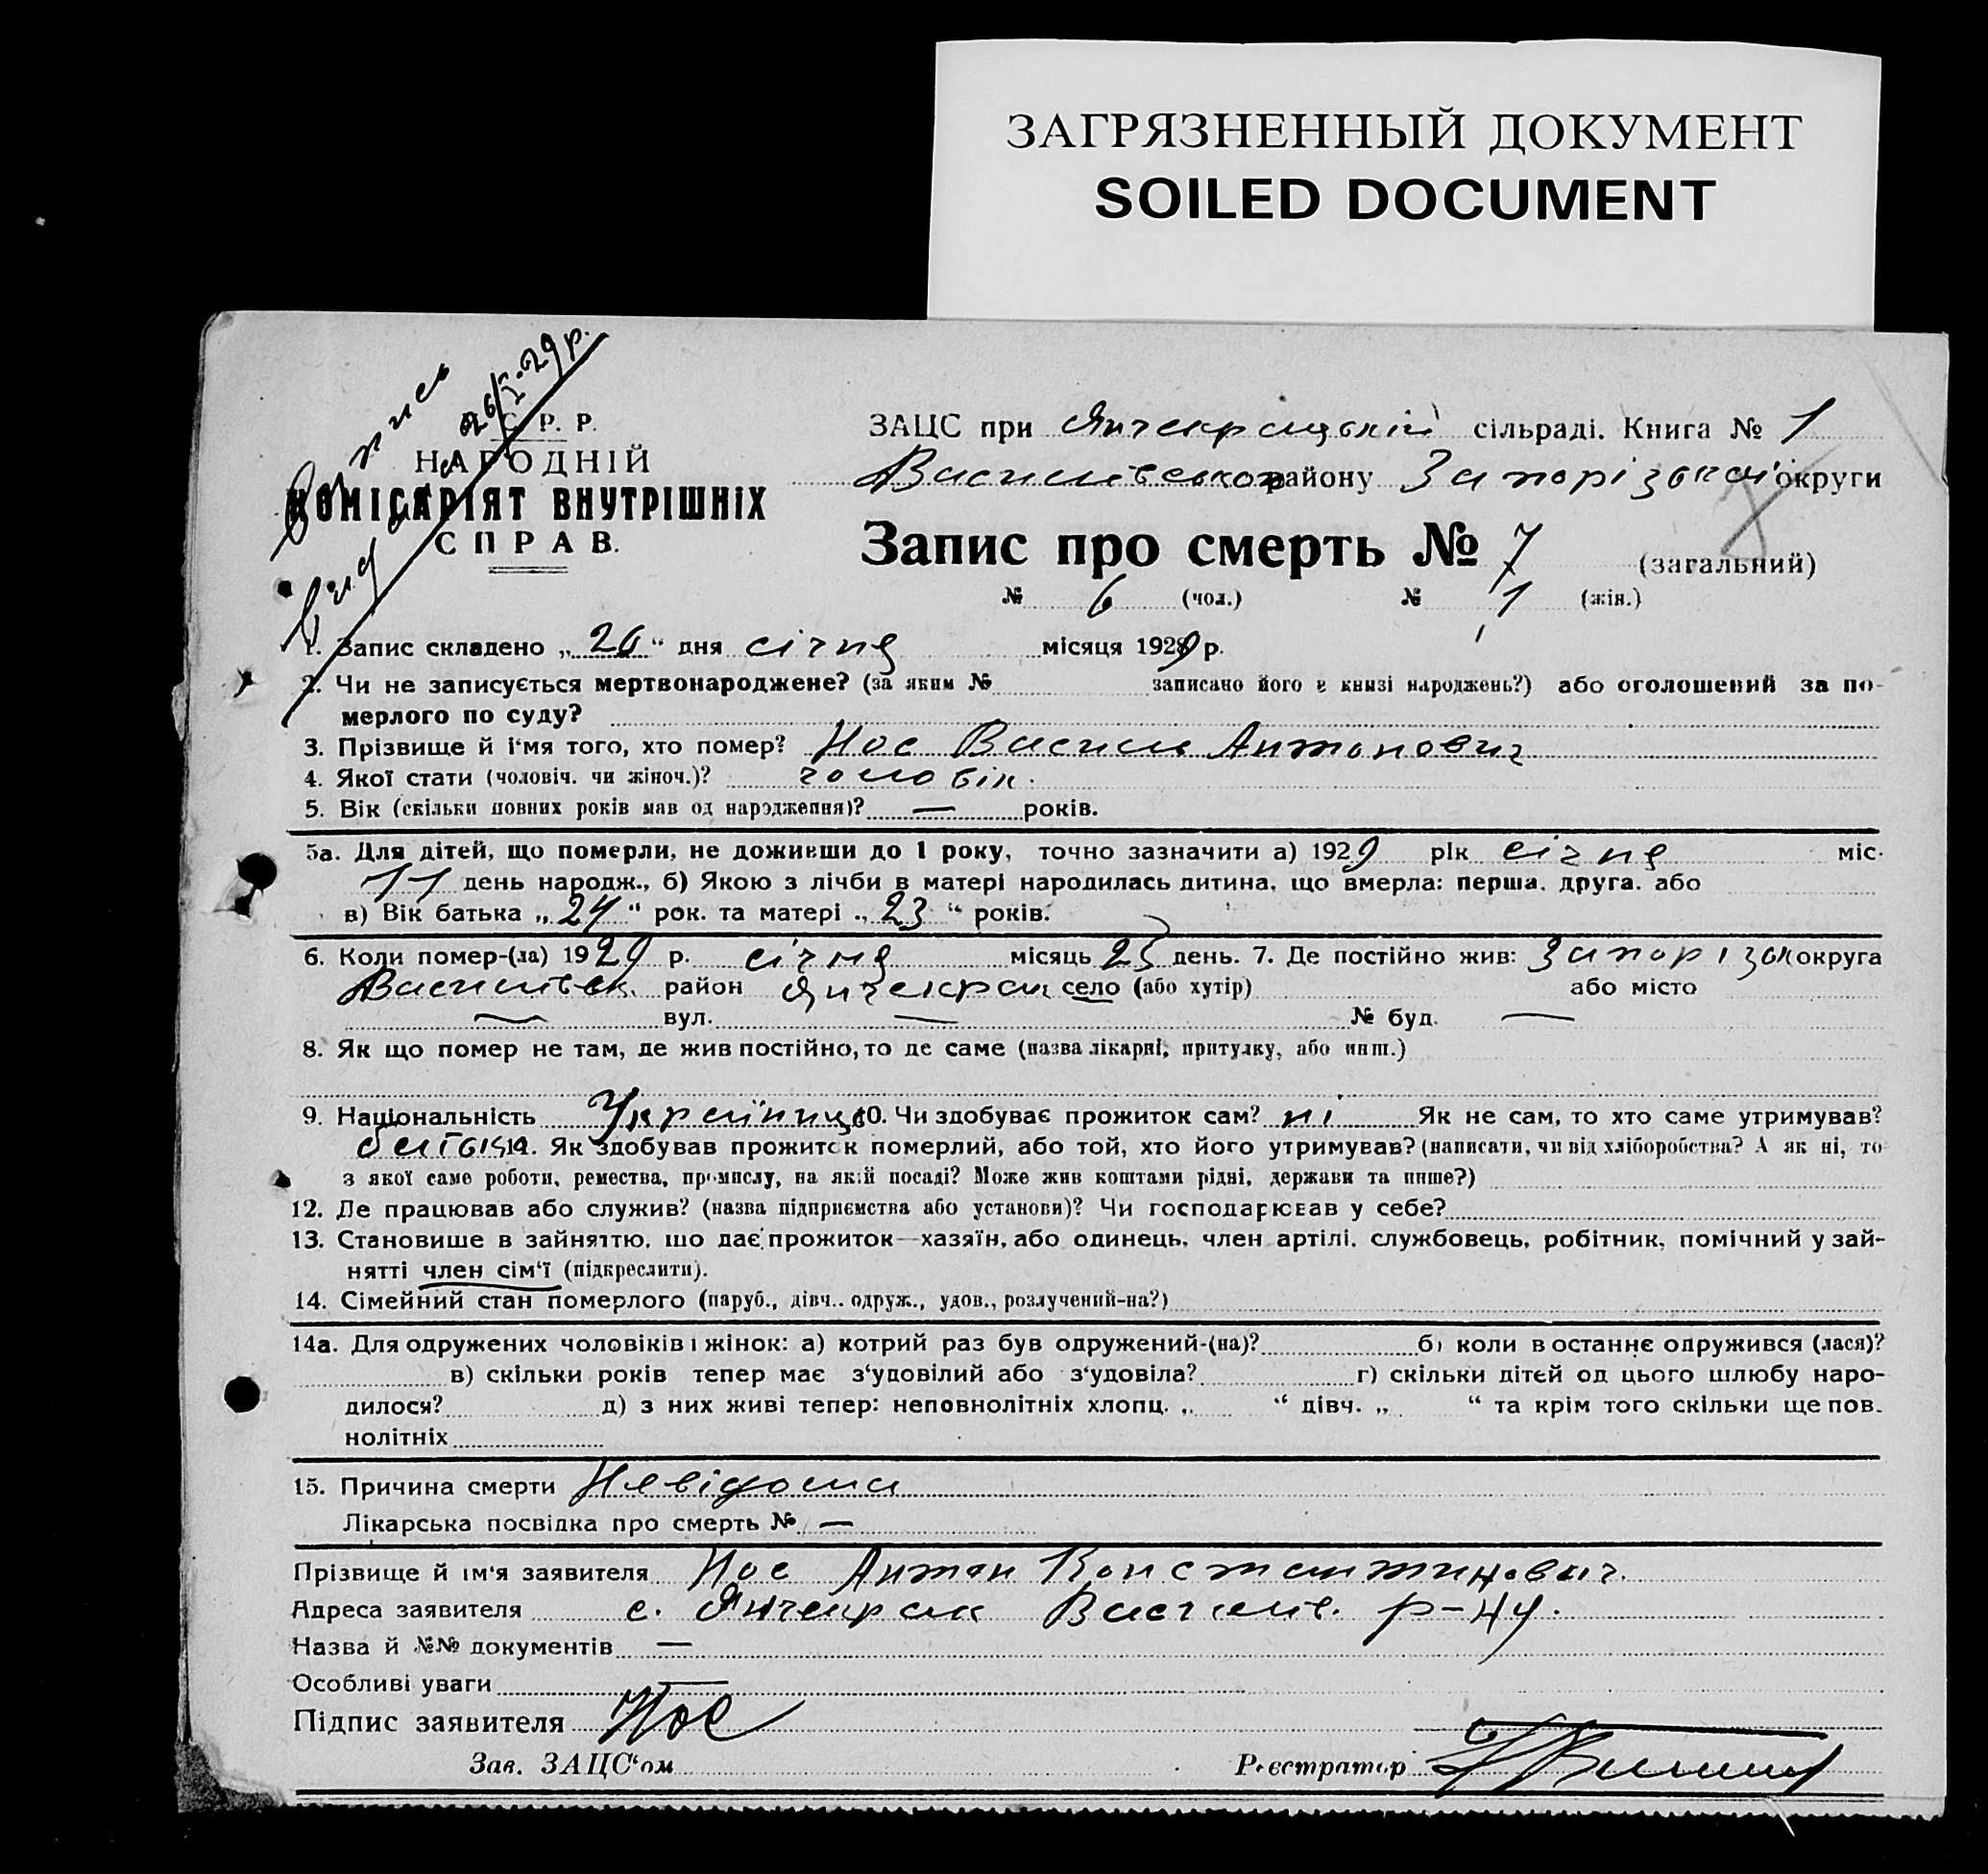 ЗАГРЯЗНЕННЫЙ ДОКУМЕНТ
SOILED DOCUMENT
26/I-29 р.
С. Р. Р.
НАРОДНІЙ
КОМІСАРІЯТ ВНУТРІШНІХ
СПРАВ.
ЗАЦС при Янчекрацькій сільраді. Книга № 1
Васильвськом району Запорізької округи
Запис про смерть № 7 (загальний)
№ 6 (чол.) № 1 (жін.)
1. Запис складено „26“ дня січня місяця 1929 р.
2. Чи не записується мертвонароджене? (за яким № записано його в книзі народжень?) або оголошений за по-
мерлого по суду?
3. Прізвище й і'мя того, хто помер? Нос Василь Антонович
4. Якої стати (чоловіч. чи жіноч.)? чоловік.
5. Вік (скільки повних років мав од народження)? — років.
5а. Для дітей, що померли, не доживши до 1 року, точно зазначити а) 1929 рік січня міс.
11 день народж., б) Якою з лічби в матері народилась дитина, що вмерла: перша, друга, або
в) Вік батька „24“ рок. та матері „23“ років.
6. Коли помер-(ла) 1929 р. січня місяць 25 день. 7. Де постійно жив: Запорізьк округа
Васильвськ. район Янчекрак село (або хутір) або місто
— вул. — № буд. —
8. Як що помер не там, де жив постійно, то де саме (назва лікарні, притулку, або инш.)
9. Національність Українець 10. Чи здобуває прожиток сам? ні Як не сам, то хто саме утримував?
батько 11. Як здобував прожиток померлий, або той, хто його утримував? (написати, чи від хліборобства? А як ні, то
з якої саме роботи, ремества, промислу, на якій посаді? Може жив коштами рідні, держави та инше?)
12. Де працював або служив? (назва підприємства або установи)? Чи господарював у себе?
13. Становище в зайняттю, що дає прожиток—хазяїн, або одинець, член артілі, службовець, робітник, помічний у зай-
нятті член сім'ї (підкреслити).
14. Сімейний стан померлого (паруб., дівч., одруж., удов., розлучений-на?)
14а. Для одружених чоловіків і жінок: а) котрий раз був одружений-(на)? б) коли востаннє одружився (лася)?
в) скільки років тепер має з'удовілий або з'удовіла? г) скільки дітей од цього шлюбу наро-
дилося? д) з них живі тепер: неповнолітніх хлопц. „ “ дівч. „ “ та крім того скільки ще пов-
нолітніх
15. Причина смерти Невідома
Лікарська посвідка про смерть № —
Прізвище й ім'я заявителя Нос Антон Константинович.
Адреса заявителя с. Янчекрак Василів. р-ну.
Назва й №№ документів —
Особливі уваги —
Підпис заявителя Нос
Зав. ЗАЦС'ом Реєстратор